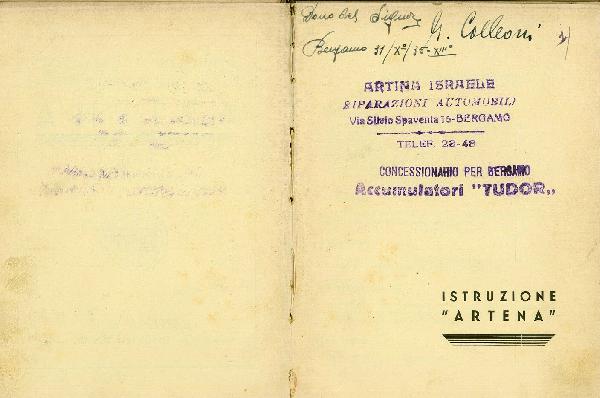 Dono del Signor G. Colleoni
Bergamo 31/X°/35-XIII°
ARTINA ISRAELE
RIPARAZIONI AUTOMOBILI
Via Silvio Spaventa 15-BERGAMO
TELEF. 28-48
CONCESSIONARIO PER BERGAMO
Accumulatori "TUDOR„
ISTRUZIONE
"ARTENA"